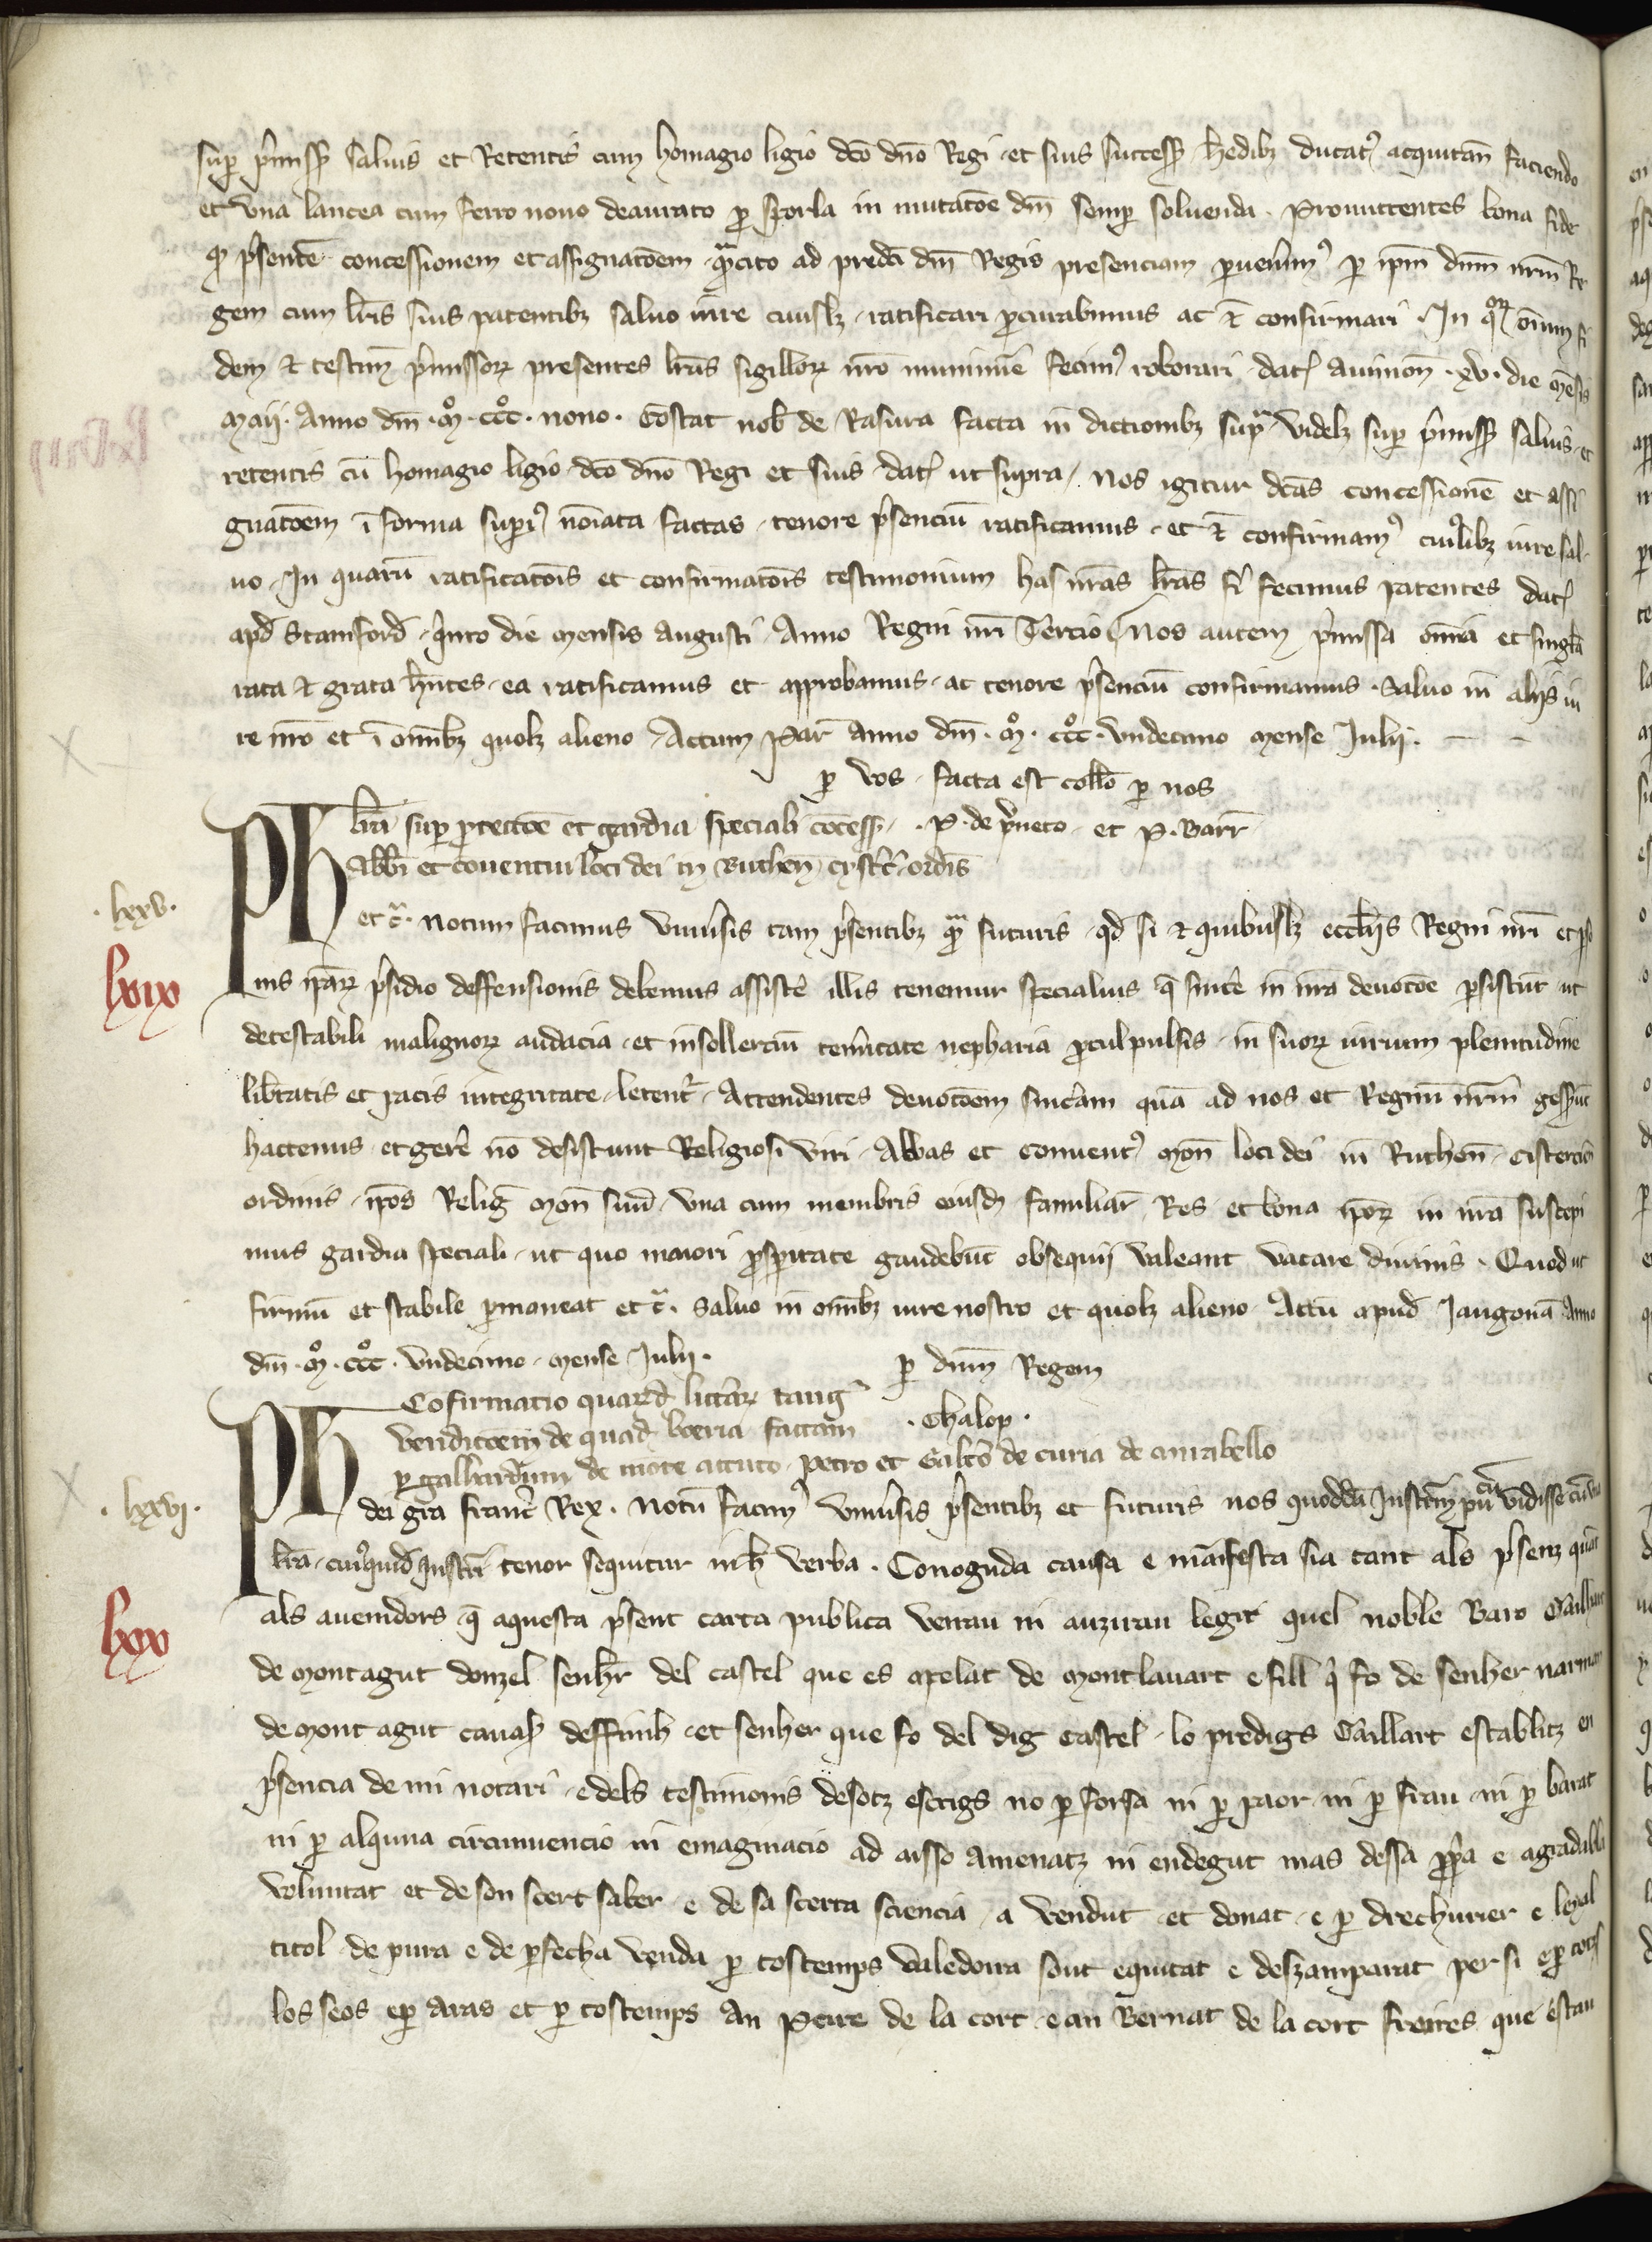 sup p̄miss̄ saluis et Retentis cum homagio ligio dc̄o dn̄o Regi et suis success̄ hedibz ducat9 acquitan̄ faciendo
et vna lancea cum ferro nouo deaurato p sporla in mutatōe dn̄i semp soluenda . Promittentes bona fide
qd p̄sentē concessionem et assignatōem qācito ad predc̄i dn̄i Regis presenciam puen̄im9 p ip̄m dnm̄ nrm̄ Re
gem cum lr̄is suis patentibz saluo iure cuiuslz ratificari pcurabimus ac & confirmari . In qorz om̄ium fi
dem & testim̄ p̄missorz presentes lr̄as sigillorz nr̄o munimīe fecim9 roborari dat̄ auinion̄ . xv . die mēsis
Maij . Anno dn̄i . mº . cccº . nono . Cōstat nob̄ de Rasura facta in dictionibz supa videlz sup p̄miss̄ saluis et
retentis cū homagio ligio dc̄o dn̄o Regi et suis dat̄ ut supra / Nos igitur dc̄as concessionē et assi
gnatōem ī forma supi9 noīata factas tenore p̄senciū ratificamus et & confirmam9 cui9libz iure sal
uo . In quarū ratificatōis et confirmatōis testimonium has nr̄as lr̄as fi fecimus patentes dat̄
apd̄ Stamford̄ q̄nto die mensis augusti Anno Regni nr̄i Tercio Nos autem p̄missa om̄ia et singl̄a
rata & grata hn̄tes ea ratificamus et approbamus ac tenore p̄senciū confirmamus . Saluo in aliis iu
re nr̄o et ī om̄ibz quolz alieno Actum Par̄ anno dn̄i . mº . cccº . vndecimo mense Julij .
p vos . facta est coll̄o p nos
lr̄a sup ptectōe et gardia speciali cōcess̄ . . P . de p̄neto et P . Barr̄
Abb̄i et conuentui loci dei in Ruthen̄ cyst̄c̄ ordīs
. lxxv .
lxix
Ph et c̄ . Notum facimus vniu̓sis tam p̄sentibz qam futuris qd̄ si & quibuslz eccl̄iis Regni nr̄i et pso
nis ip̄arz p̄sidio deffensionis debemus assistē illis tenemur specialius q̄ sincē in nr̄a deuotōe psistūt ut
detestabili malignorz audacia et insollerciū tem̄itate nepharia pculpulsis in suorz iurium plenitudine
lib̄tatis et pacis integritate letent̄ . Attendentes deuotōem sinc̄am quā ad nos et Regnū nrm̄ gess̄ūt
hactenus et gerē nō desistunt Religiosi viri Abbas et conuent9 mon̄ loci dei in Ruthen̄ cisterciēn̄
ordinis ip̄os Reliḡ mon̄ suū vna cum membris eiusd̄ familiar̄ Res et bona ip̄orz in nr̄a suscepi
mus gardia speciali ut quo maiori psperitate gaudebūt obsequij valeant vacare diuinis . Quod ut
firmū et stabile pmaneat et c̄ . Saluo in om̄ibz iure nostro et quolz alieno Actū apud Jangonā anno
dn̄i . mº . cccº . vndecimo mense Julij . p dnm̄ Regem
Cōfirmatio quar̄d̄ litt̄arz tanḡ
venditōem de quad̄ boeria factam . Chalop .
p gallhardum de mōte acuto . Petro et Galt̄o de curia de mirabello
. lxxvi .
lxx
Ph dei gra franc̄ Rex . Notū facim9 vniu̓sis p̄sentibz et futuris nos quoddā Instrm̄ pu̓cū vidisse cui9
lr̄a . cui9quid̄ Instr̄i tenor sequitur in h̄ verba . Conoguda causa e māifesta sia tant als p̄senz quāt
als auenidors q̄ aquesta p̄sent carta publica veirau ni auzirau legir quel noble Baro Gailhart
de montagut donzel senhr̄ del castel que es apelat de montlauart e fill q̄ fo de senher narman
de mont agut cauaȷ̄ deffunh et senher que fo del dig castel lo predigs Gaillart establitz en
p̄sencia de mi notari e dels testimonis desotz escrigs no p forsa ni p paor ni p frau ni p barat
ni p alquna circunuencio ni emaginacio ad aisso amenatz ni endegut mas dessa pp̄a e agradabla
voluntat et de son scert saber e de sa scerta sciencia a vendut et donat e p drechurier e leyal
titol de pura e de pfecha venda p tostemps valedoira sout equitat e deszamparat per si e p totz
los seos ep aras et p tostemps an Peire de la cort e an Bernat de la cort freires que estan